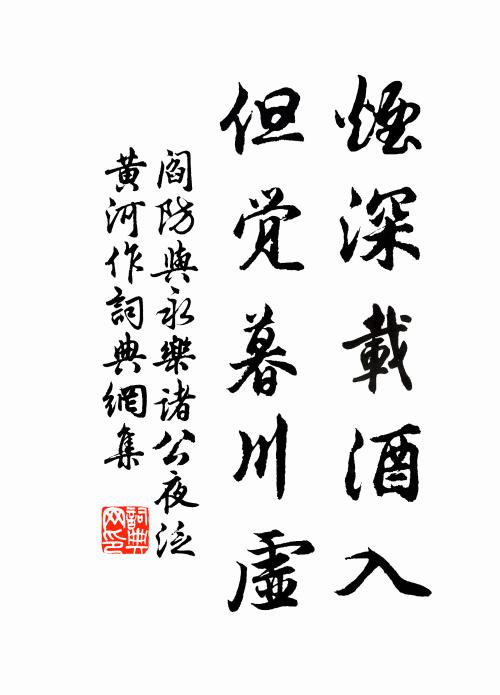 煙深載酒入
但觉暮川虛
閻防與永樂诸公夜泛
黄河作詞典網集
詞典网印